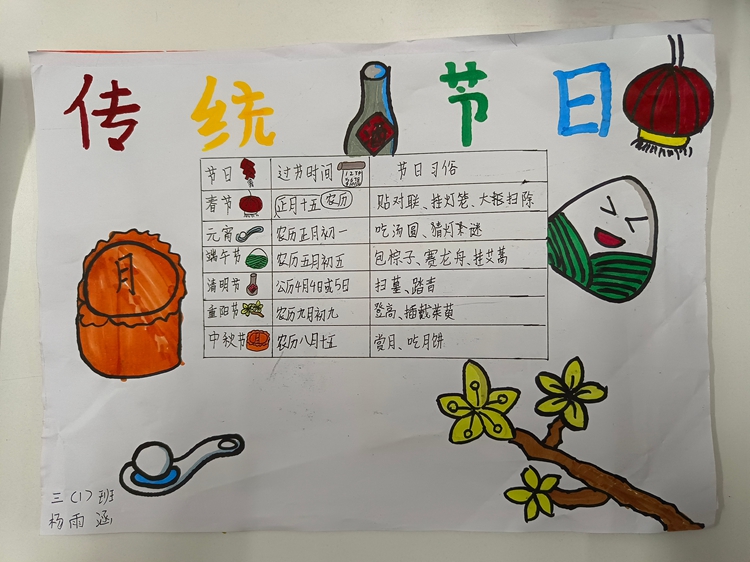 传统节日
节日 过节时间 节日习俗
春节 正月十五 农历 贴对联、挂灯笼、大报扫除
元宵 农历正月初一 吃汤圆、猜灯谜
端午节 农历五月初五 包粽子、赛龙舟、挂艾蒿
清明节 公历4月4日或5日 扫墓、踏青
重阳节 农历九月初九 登高、插戴茱萸
中秋节 月 农历八月十五 赏月、吃月饼
月
三（1）班
杨雨涵